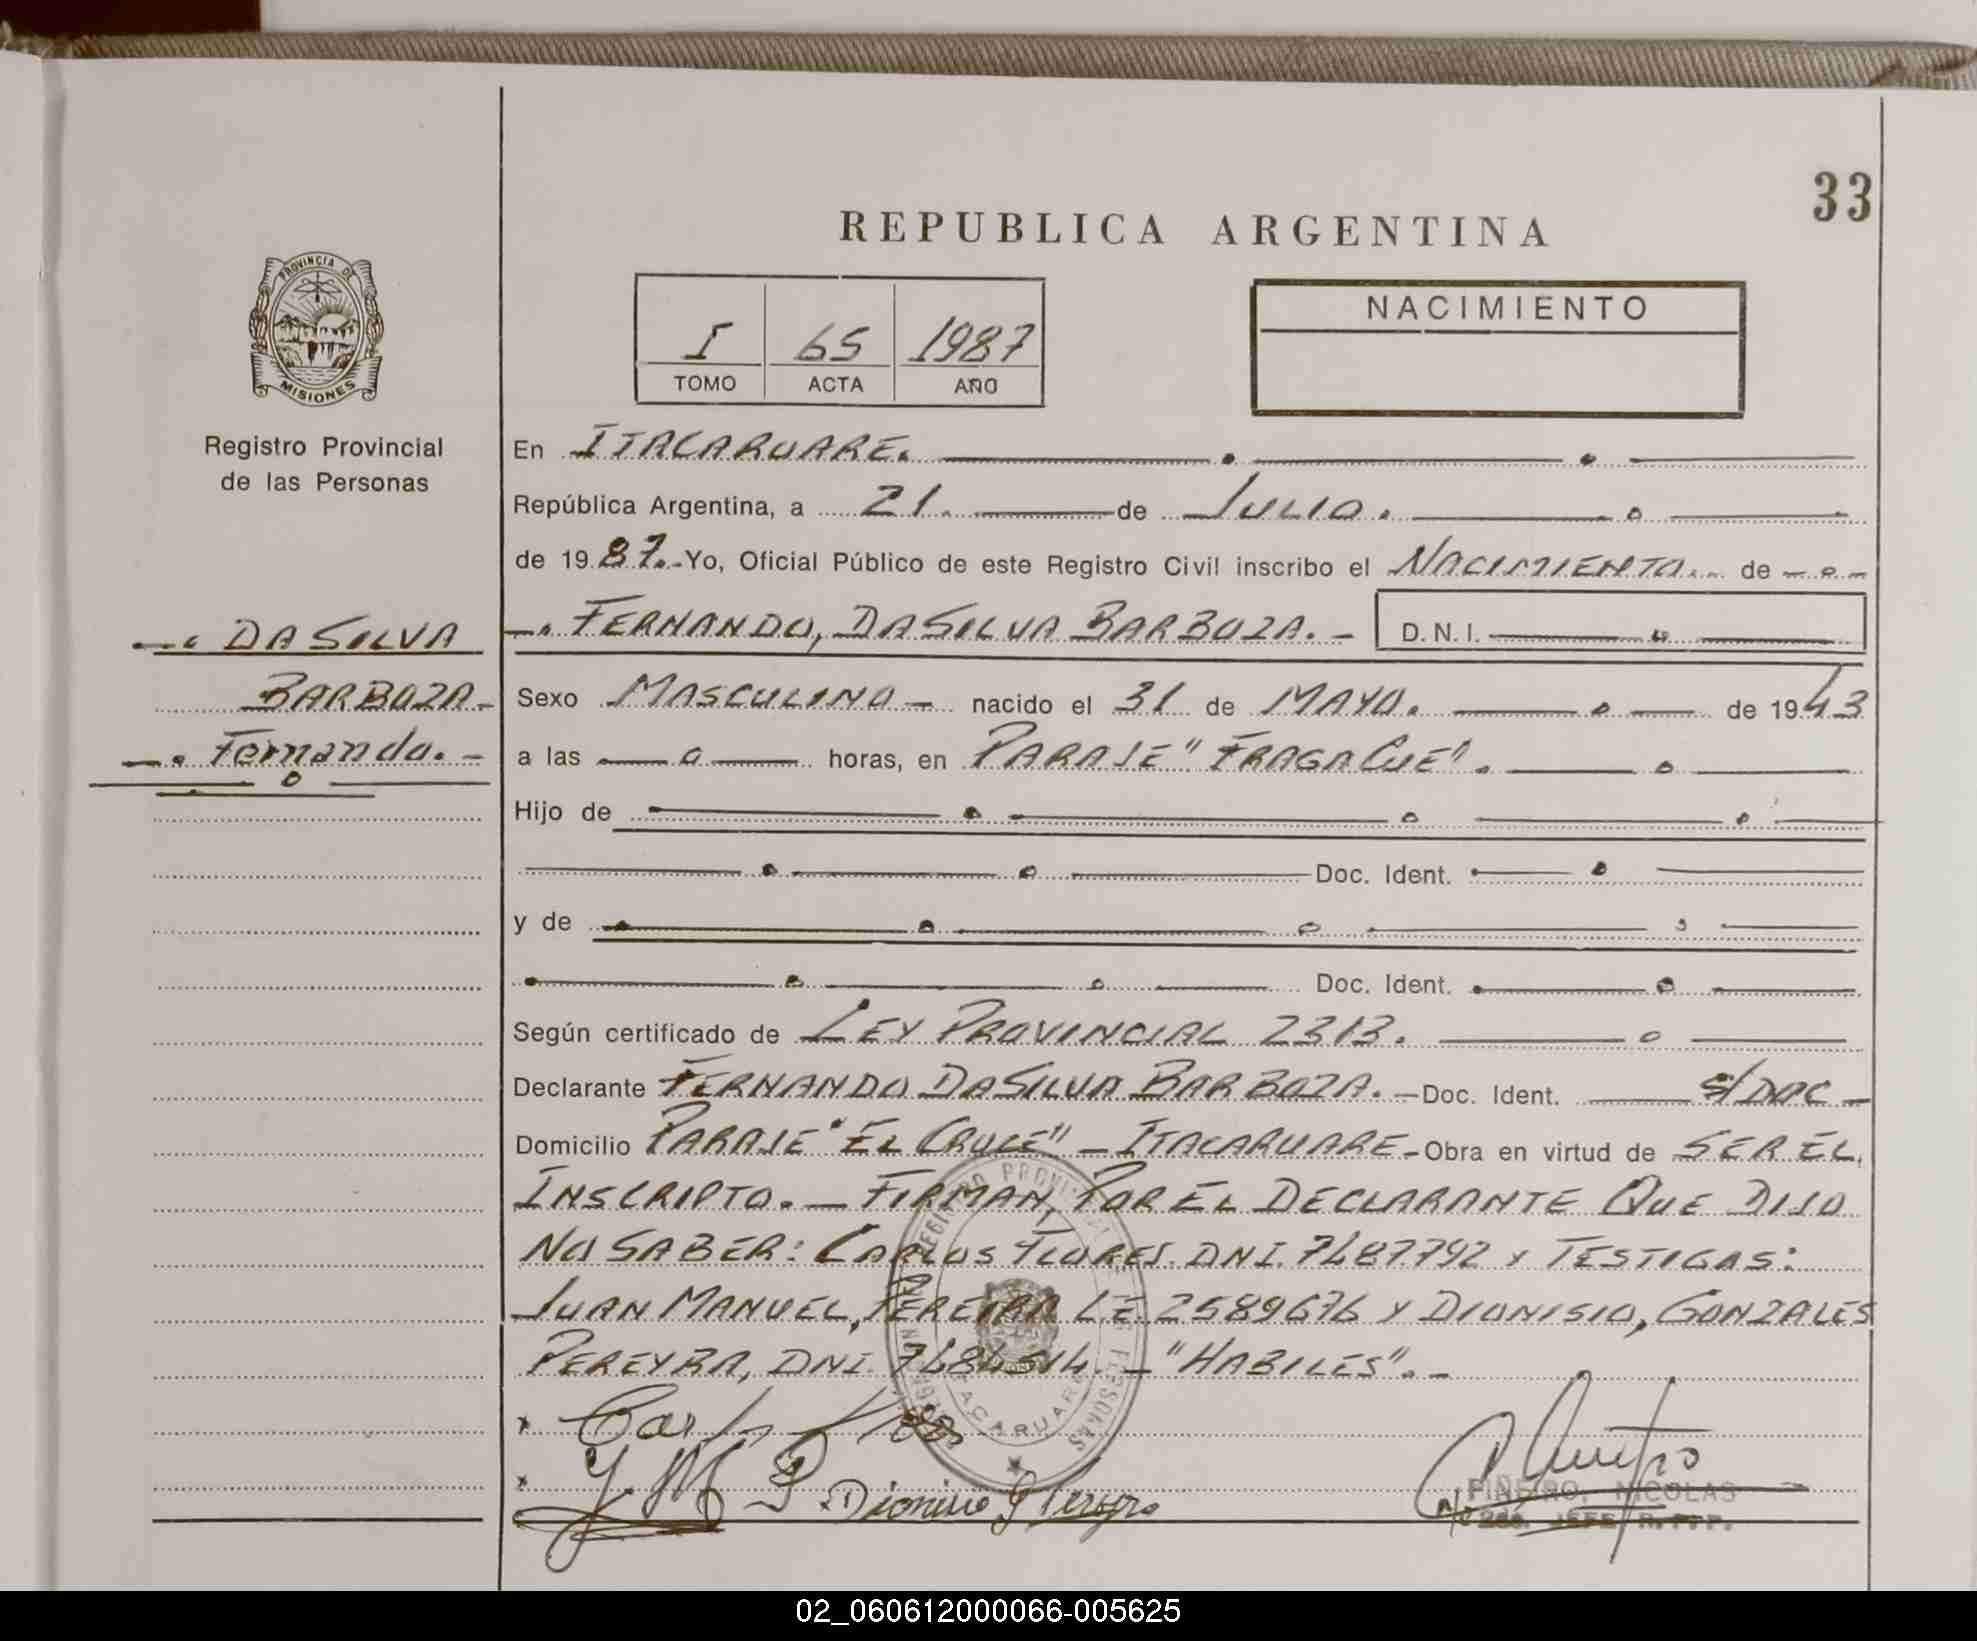 33
REPUBLICA ARGENTINA
PROVINCIA DE
MISIONES
Registro Provincial
de las Personas
I 65 1987
TOMO ACTA AÑO
NACIMIENTO
En ITACARUARE.
República Argentina, a 21. de JULIO.
de 1987.- Yo, Oficial Público de este Registro Civil inscribo el NACIMIENTO.. de
DA SILVA
BARBOZA-
Fernando.-
FERNANDO, DASILVA BARBOZA.- D.N.I.
Sexo MASCULINO - nacido el 31 de MAYO. de 1943
a las horas, en PARAJE "FRAGA CUE".
Hijo de
Doc. Ident.
y de
Doc. Ident.
Según certificado de LEY PROVINCIAL 2313.
Declarante FERNANDO DASILVA BARBOZA.- Doc. Ident. S/DOC -
Domicilio PARAJE "EL CRUCE" - ITACARUARE - Obra en virtud de SER EL
INSCRIPTO.- FIRMAN, POR EL DECLARANTE QUE DIJO
NO SABER: CARLOS FLORES. DNI. 7487792 y TESTIGOS:
JUAN MANUEL, PEREIRA L.E. 2589676 y DIONISIO, GONZALES
PEREYRA, DNI. 7484514.- "HABILES".-
PIÑEIRO, NICOLAS
2do. JEFE R.P.P.
02_060612000066-005625